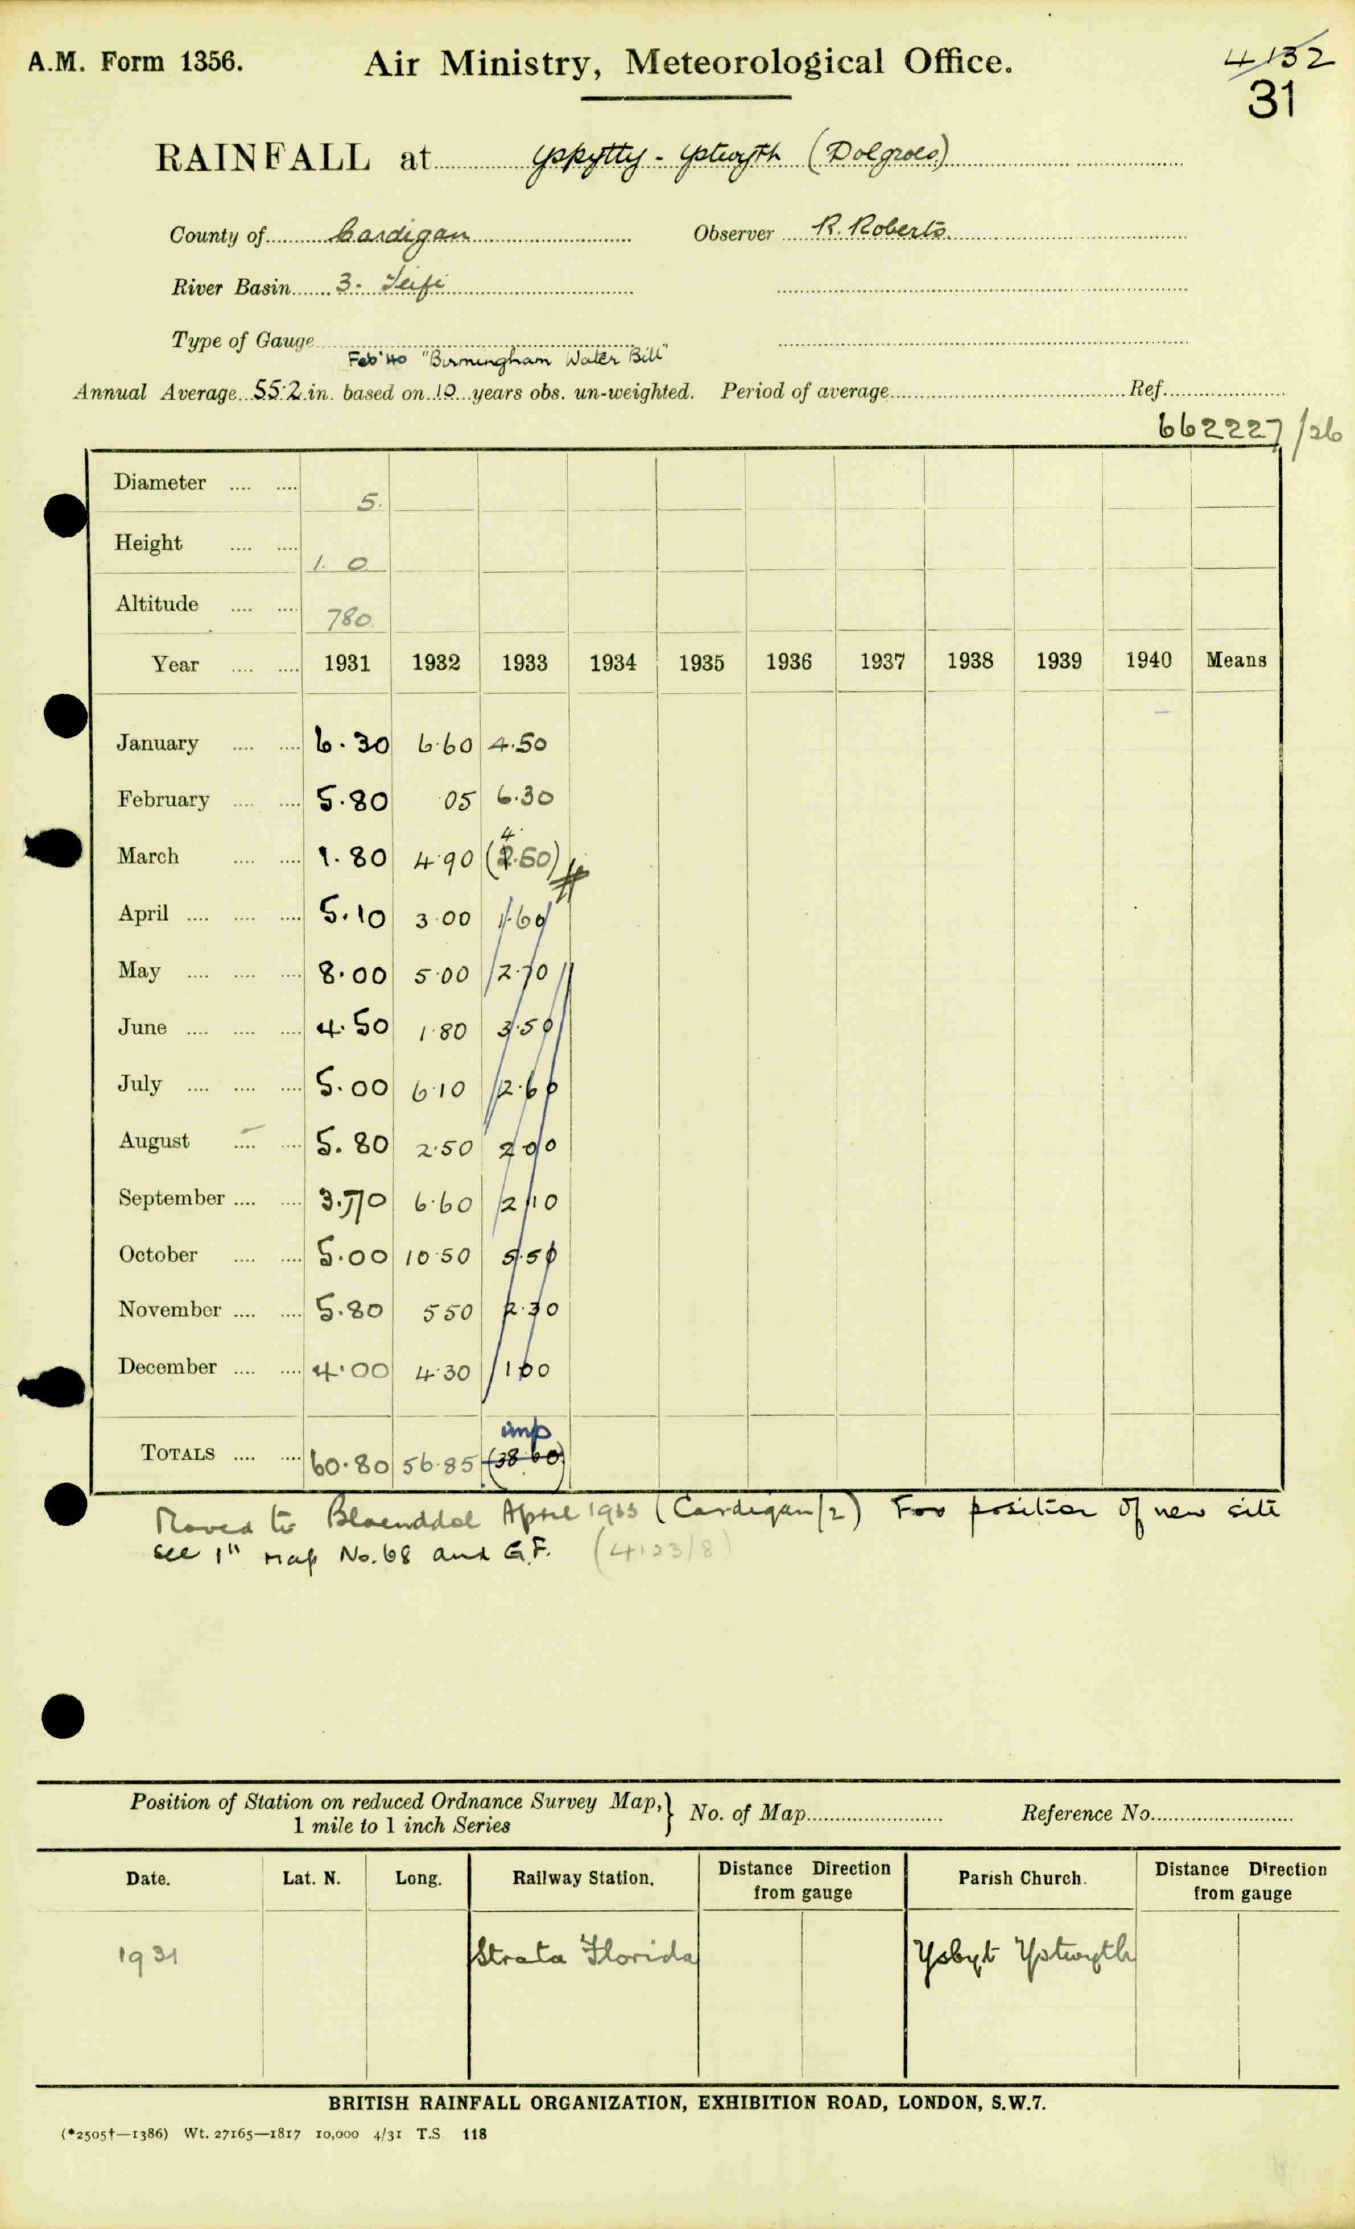 A.M. Form 1356.
Air Ministry, Meteorological Office.
4132
31
RAINFALL at Yspytty - Ystwyth (Dolgroes)
County of Cardigan Observer R. Roberts.
River Basin 3. Teifi
Type of Gauge
Feb '40 "Birmingham Water Bill"
Annual Average 55.2 in. based on 10 years obs. un-weighted. Period of average Ref.
662227/26
Diameter 5.
Height 1. 0
Altitude 780
Year 1931 1932 1933 1934 1935 1936 1937 1938 1939 1940 Means
January 6.30 6.60 4.50
February 5.80 .05 6.30
4.
March 1.80 4.90 (2.60)
April 5.10 3.00 1.60
May 8.00 5.00 2.70
June 4.50 1.80 3.50
July 5.00 6.10 2.60
August 5.80 2.50 2.00
September 3.70 6.60 2.10
October 5.00 10.50 5.50
November 5.80 5.50 2.30
December 4.00 4.30 1.00
imp
TOTALS 60.80 56.85 (38.60)
Moved to Blaenddol April 1933 (Cardigan/2) For position of new site
see 1" map No. 68 and G.F. (4123/8)
Position of Station on reduced Ordnance Survey Map, } No. of Map Reference No.
1 mile to 1 inch Series
Date. Lat. N. Long. Railway Station. Distance Direction from gauge Parish Church. Distance Direction from gauge
1931 Strata Florida Ysbyt Ystwyth
BRITISH RAINFALL ORGANIZATION, EXHIBITION ROAD, LONDON, S.W.7.
(*2505†—1386) Wt. 27165—1817 10,000 4/31 T.S. 118